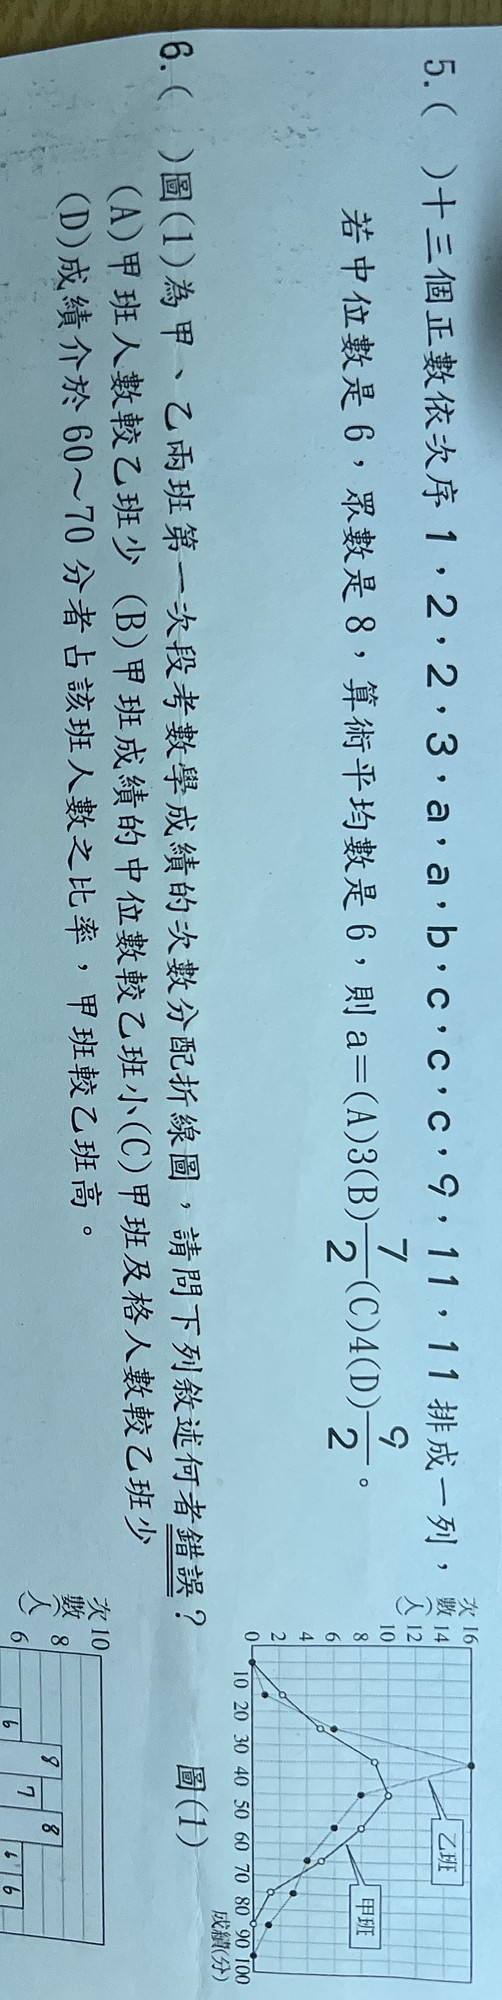 5.(　)十三個正數依次序 1，2，2，3，a，a，b，c，c，c，9，11，11 排成一列，
若中位數是 6，眾數是 8，算術平均數是 6，則 a＝(A)3(B)7/2(C)4(D)9/2。
6.(　)圖(1)為甲、乙兩班第一次段考數學成績的次數分配折線圖，請問下列敘述何者錯誤？
(A)甲班人數較乙班少 (B)甲班成績的中位數較乙班小(C)甲班及格人數較乙班少
(D)成績介於 60～70 分者占該班人數之比率，甲班較乙班高。
次數(人)
16
14
12
10
8
6
4
2
0
10 20 30 40 50 60 70 80 90 100
成績(分)
乙班
甲班
圖(1)
次數(人
10
8
6
6 8 7 8 6 6